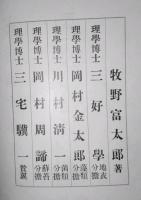 牧野富太郎著
理學博士 三好學 地衣分擔
理學博士 岡村金太郎 藻類分擔
理學博士 川村淸一 菌類分擔
理學博士 岡村周諦 蘚苔分擔
理學博士 三宅驥一 校閱